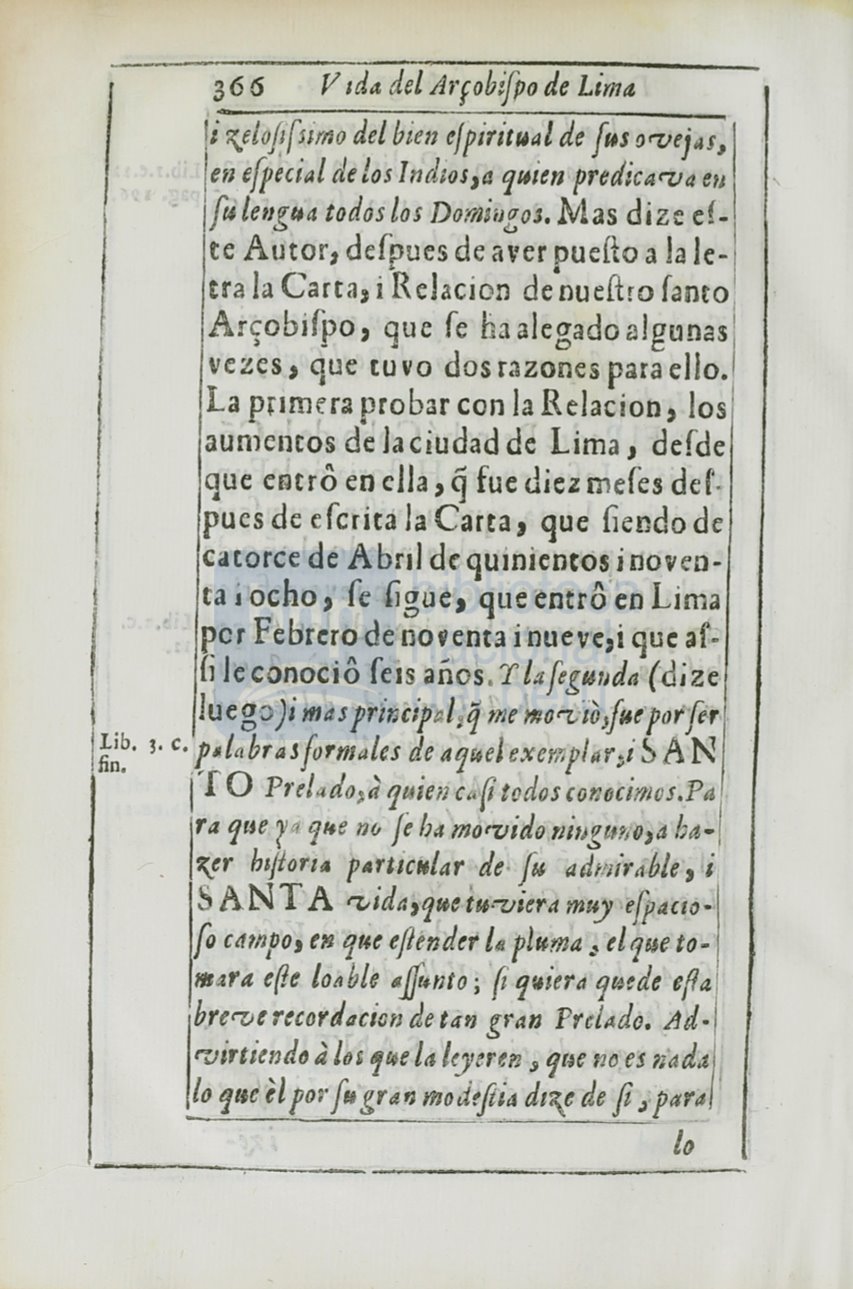 366 Vida del Arçobiſpo de Lima
i zeloſiſsimo del bien eſpiritual de ſus ovejas,
en eſpecial de los Indios, a quien predicava en
ſu lengua todos los Domingos. Mas dize eſ-
te Autor, deſpues de aver pueſto a la le-
tra la Carta, i Relacion de nueſtro ſanto
Arçobiſpo, que ſe ha alegado algunas
vezes, que tuvo dos razones para ello.
La primera probar con la Relacion, los
aumentos de la ciudad de Lima, deſde
que entrô en ella, q̃ fue diez meſes deſ-
pues de eſcrita la Carta, que ſiendo de
catorce de Abril de quinientos i noven-
ta i ocho, ſe ſigue, que entrô en Lima
por Febrero de noventa i nueve, i que aſ-
ſi le conociô ſeis años. Y la ſegunda (dize
luego) i mas principal, q̃ me moviò, fue por ſer
Lib. 3. c.
fin.
palabras formales de aquel exemplar, i SAN
TO Prelado, à quien caſi todos conocimos. Pa
ra que ya que no ſe ha movido ninguno, a ha-
zer hiſtoria particular de ſu admirable, i
SANTA vida, que tuviera muy eſpacio-
ſo campo, en que eſtender la pluma, el que to-
mara eſte loable aſſunto; ſi quiera quede eſta
breve recordacion de tan gran Prelado. Ad-
virtiendo à los que la leyeren, que no es nada
lo que èl por ſu gran modeſtia dize de ſi, para
lo